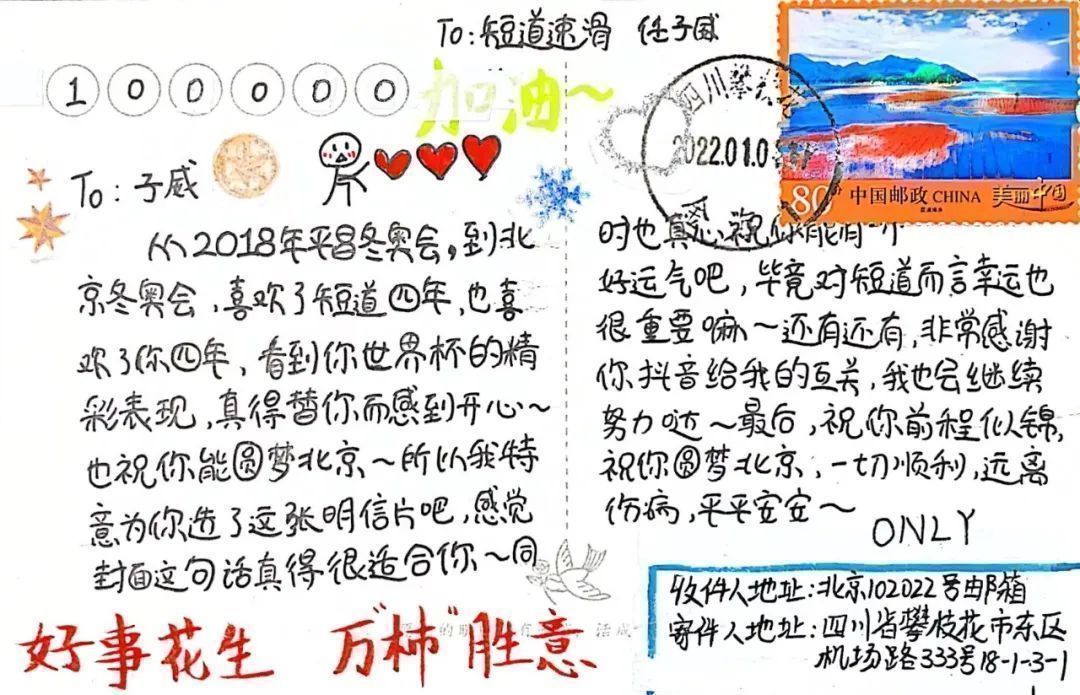 To:短道速滑 任子威
100000
加油~
四川攀枝花
2022.01.0
80分 中国邮政 CHINA 美丽中国
To:子威
从2018年平昌冬奥会,到北
京冬奥会,喜欢了短道四年,也喜
欢了你四年,看到你世界杯的精
彩表现,真得替你而感到开心~
也祝你能圆梦北京~所以我特
意为你选了这张明信片吧,感觉
封面这句话真得很适合你~同
时也真心祝你能有一个
好运气吧,毕竟对短道而言幸运也
很重要嘛~还有还有,非常感谢
你抖音给我的互关,我也会继续
努力哒~最后,祝你前程似锦,
祝你圆梦北京,一切顺利,远离
伤病,平平安安~
ONLY
好事花生 万"柿"胜意
收件人地址:北京102022号邮箱
寄件人地址:四川省攀枝花市东区
机场路333号18-1-3-1